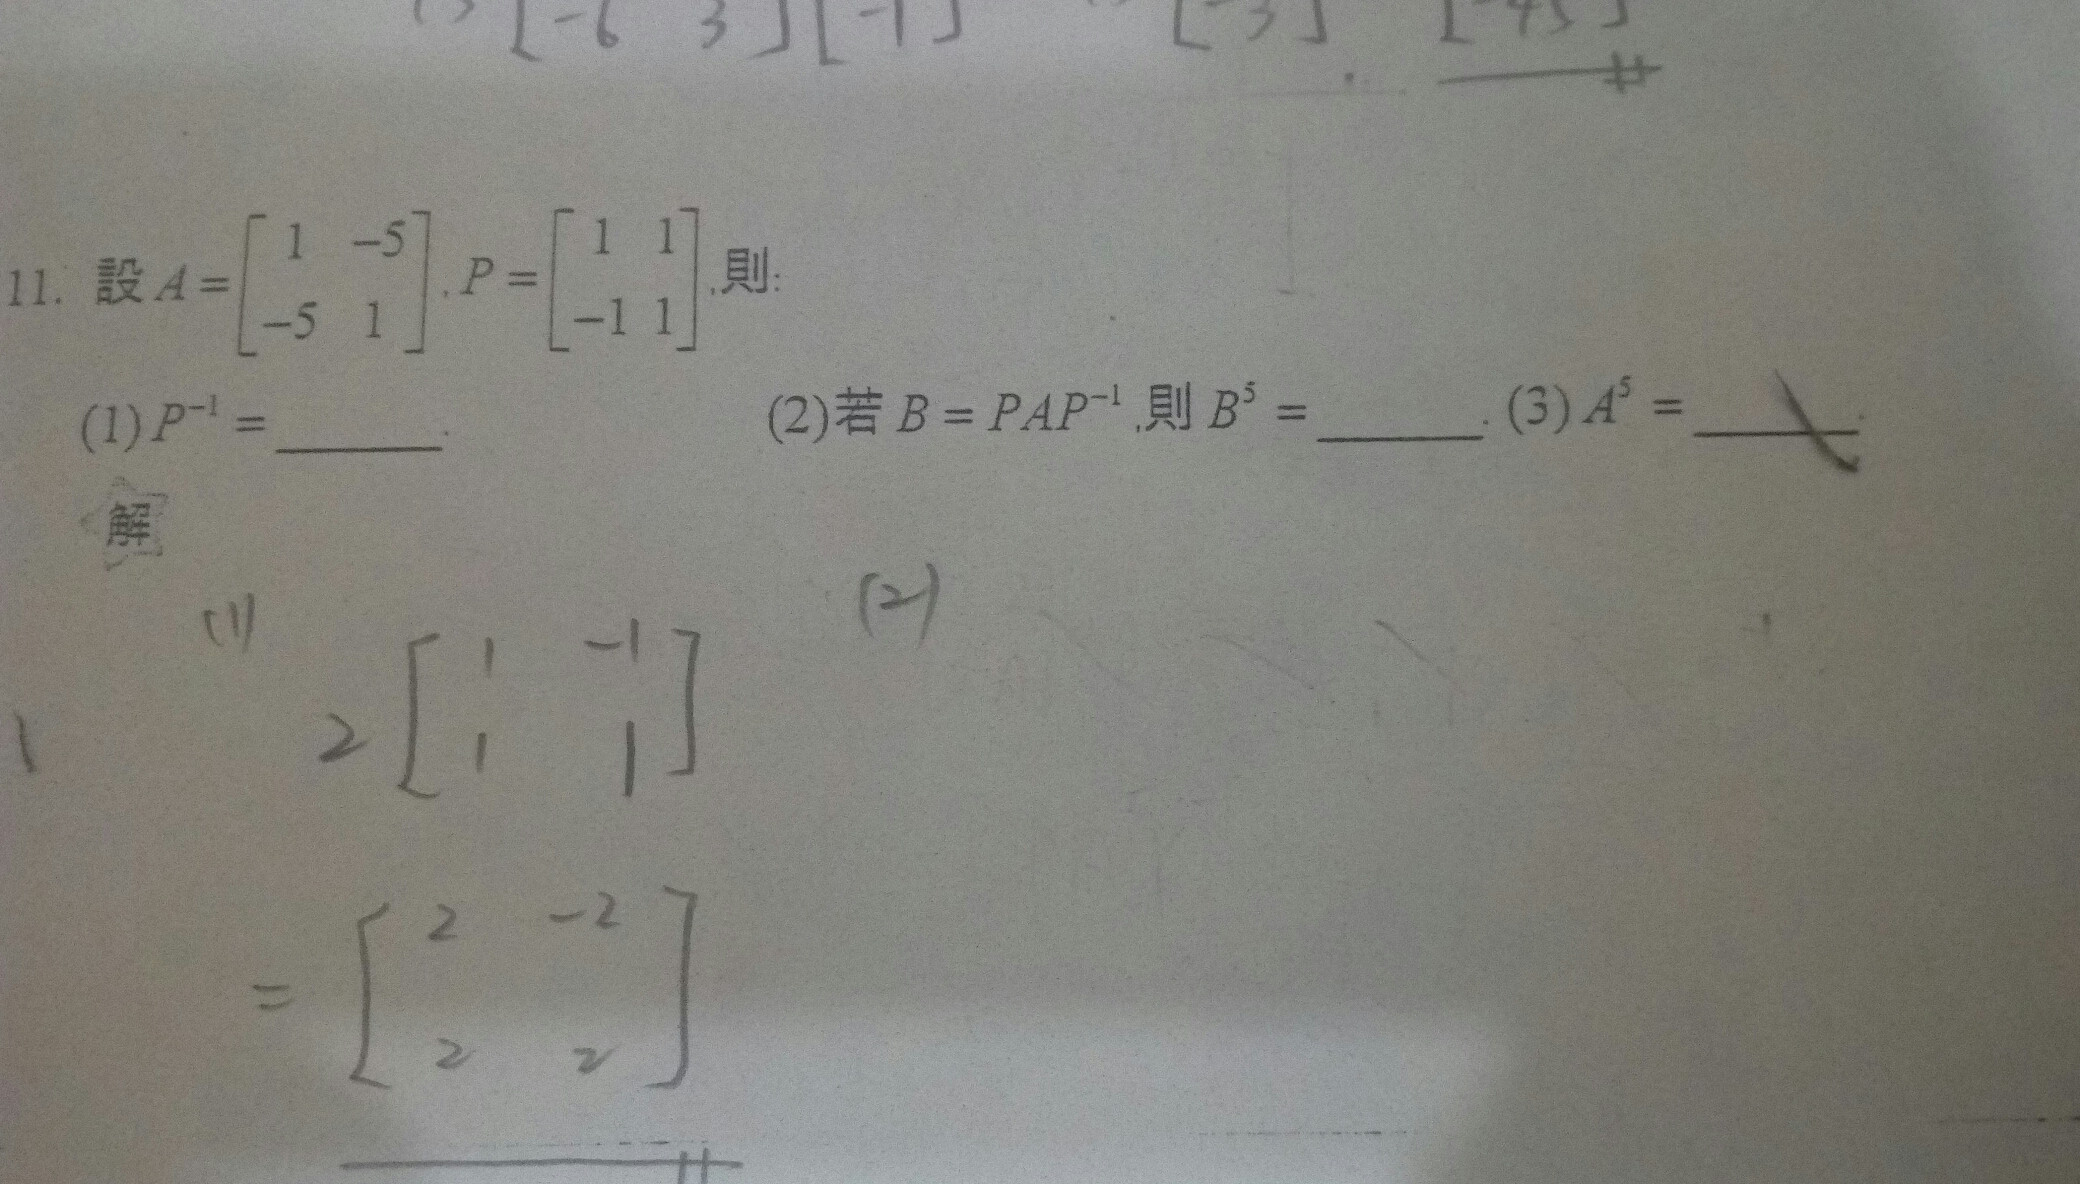 [-6 3][-1] [-3] [-45]
11. 設 A = [1 -5; -5 1], P = [1 1; -1 1], 則:
(1) P⁻¹ = ______. (2)若 B = PAP⁻¹, 則 B⁵ = ______. (3) A⁵ = ______.
解
(1) 2 [1 -1; 1 1] (2)
= [2 -2; 2 2]